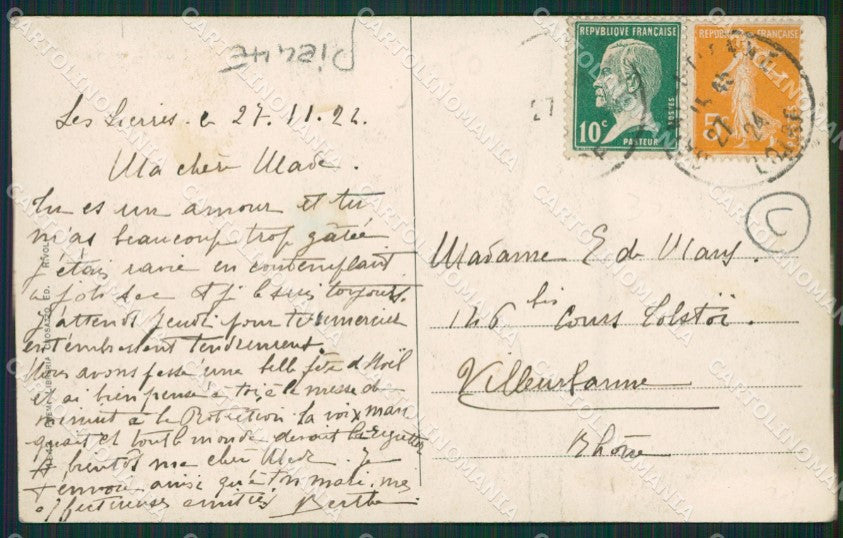 PIEUHE
REPVBLIQUE FRANÇAISE
10c
POSTES
PASTEUR
REPUBLIQUE FRANÇAISE
5
27
24
LOIRE
Les Lierres. le 27.11.24.
Ma chère Made.
Tu es un amour et tu
m'as beaucoup trop gâtée
j'étais ravie en contemplant
ce joli sac et je le suis toujours.
J'attends Jeudi pour te remercier
en t'embrassant tendrement.
Nous avons passé une belle fête de Noël
et ai bien pensé à toi, à la messe de
minuit à le Protection la voix man
quait et tout le monde devait la regretter
A bientôt ma chère Made. Je
t'envoie ainsi qu'à ton mari, mes
affectueuses amitiés Berthe
Madame E de Mans.
146 bis Cours Tolstoï.
Villeurbanne
Rhône
L
RIVOLI
CARTOLINOMANIA